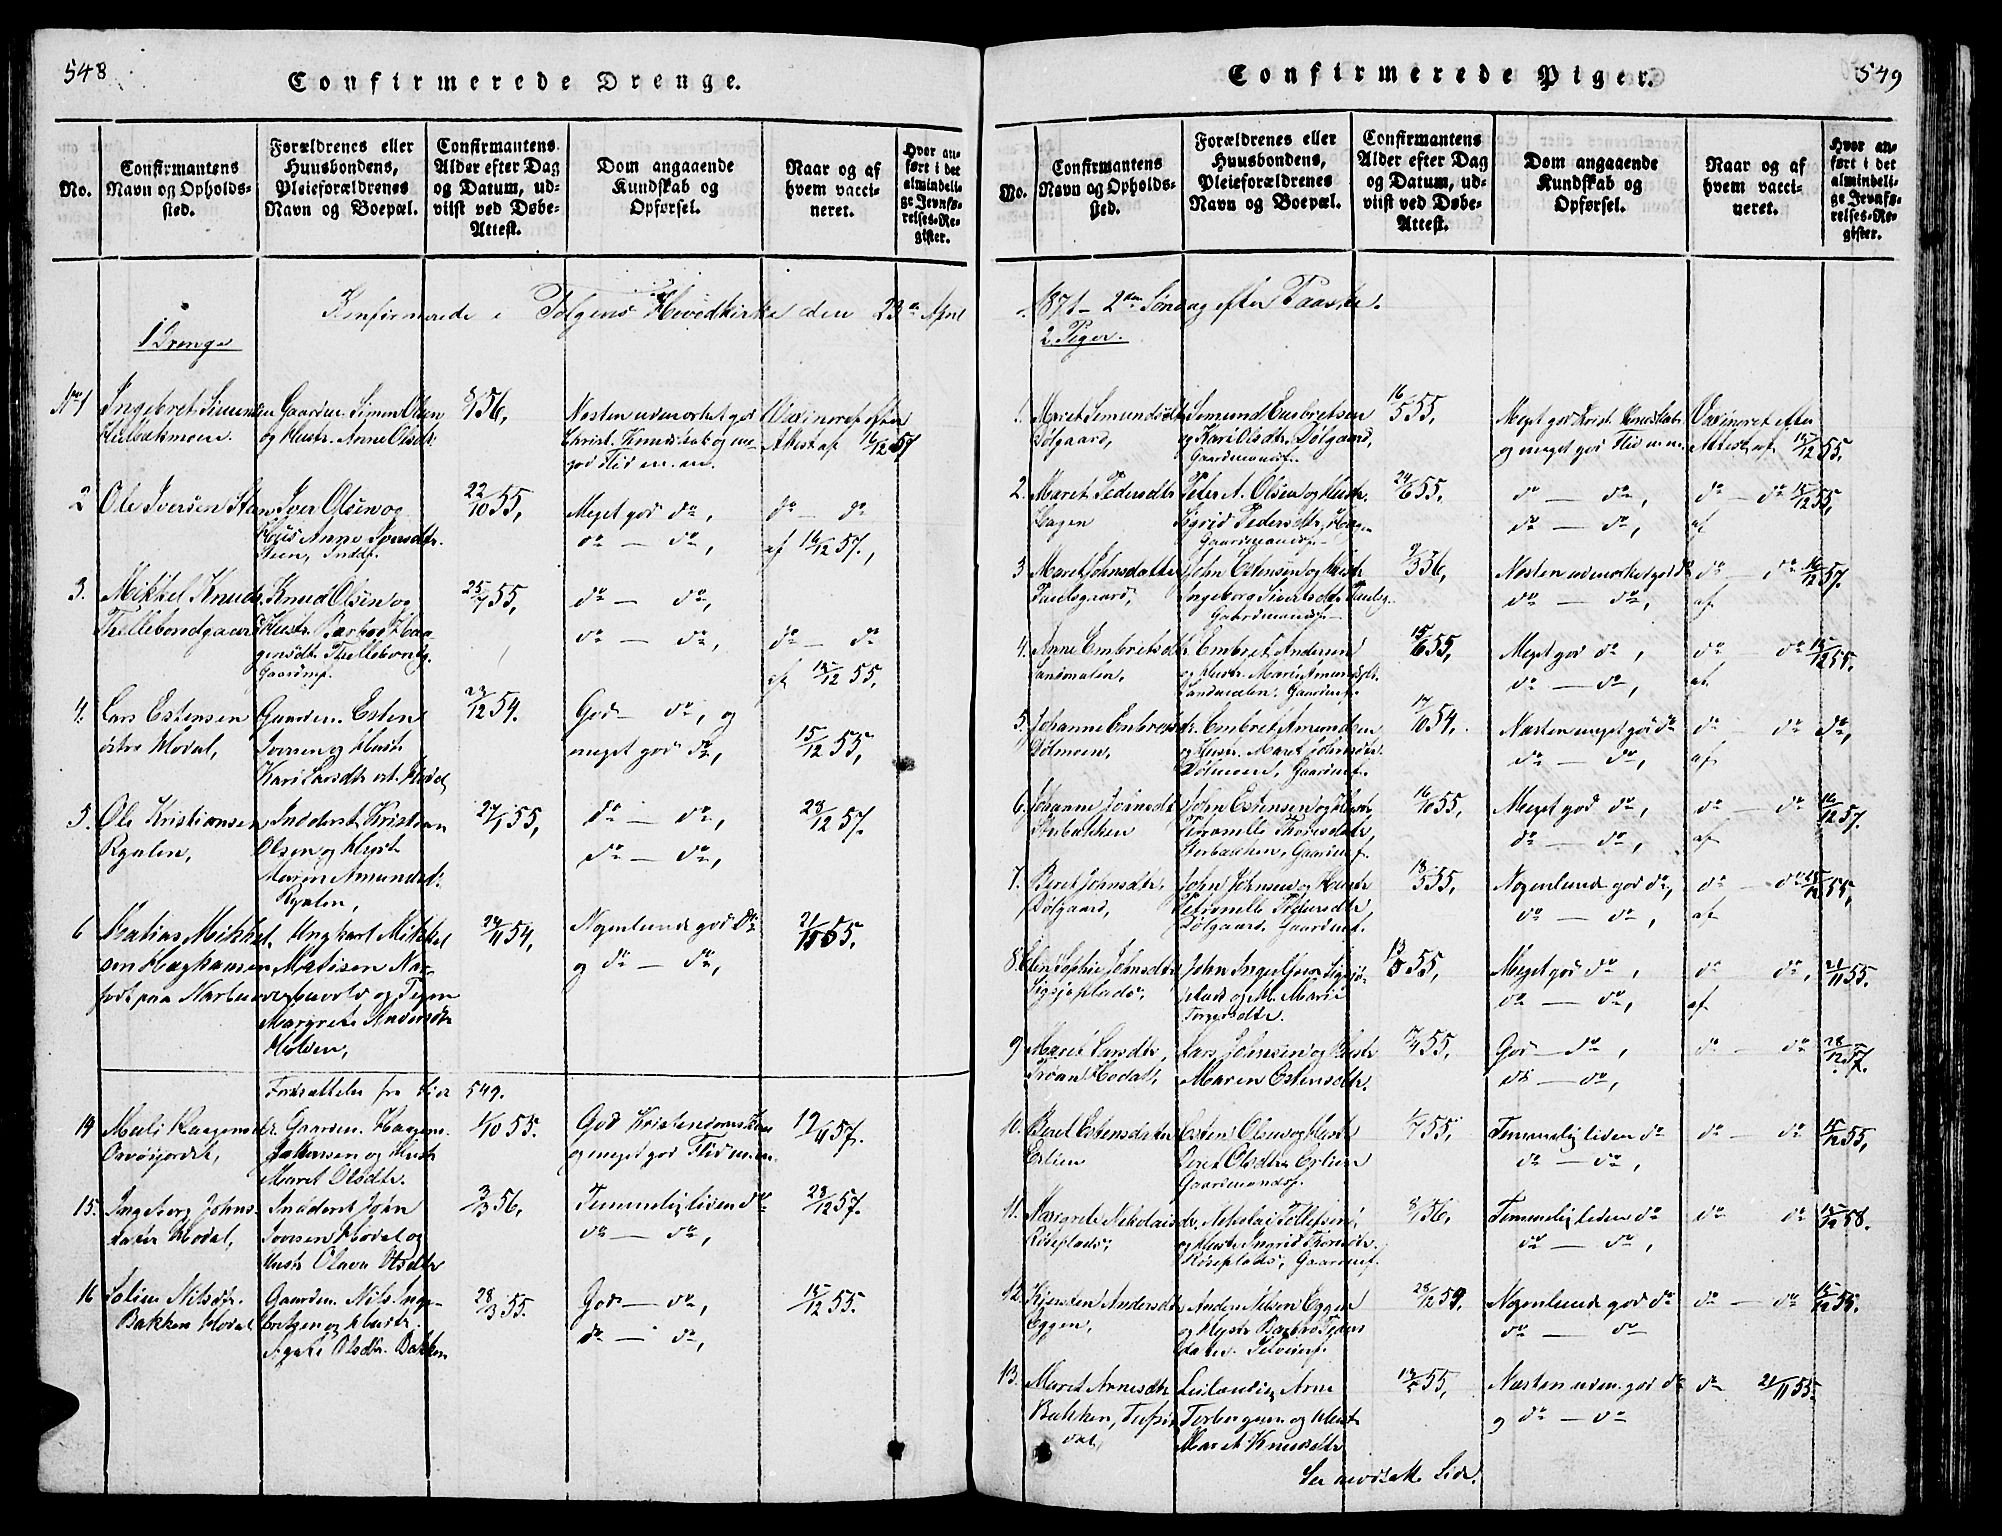 548
Confirmerede Drenge.
No.
Confirmantens Navn og Opholds-sted.
Forældrenes eller Huusbondens, Pleieforældrenes Navn og Boepæl.
Confirmantens Alder efter Dag og Datum, ud-viist ved Døbe-Attest.
Dom angaaende Kundskab og Opførsel.
Naar og af hvem vacci-neret.
Hvor an-ført i det almindeli-ge Jevnfø-relses-Re-gister.
Konfirmerede i Tolgens Hovedkirke den 23de April
1 Drenge
No 1 Ingebret Simensen
Gaardm. Simen Olsen
og Hustr. Anne Olsdtr.
8/1 56,
Næsten udmærket god
Christ. Kundskab og me-
god Flid m.m.
Vaxineret efter
Attest af 16/12 57
2 Ole Iversen Steen
Iver Olsen og
Hus Anne Iversdtr.
Steen, Indd.
22/10 55,
Meget god do,
do — do,
do — do
af 16/12 57,
3. Mikkel Knuds.
Tællebondgaard
Knud Olsen og
Hustr. Barbro Haa-
gensdtr. Tællebondg.
Gaardmf.
25/7 55,
do — do,
do — do,
do — do
af 15/12 55,
4. Lars Estensen
østre Hodal,
Gaardm. Esten
Iversen og Hustr
Kari Larsdtr øst. Hodal
29/12 54.
God — do, og
meget god do,
15/12 55,
5. Ole Kristiansen
Ryalen,
Inderst Kristian
Olsen og Hustr
Maren Amundsd.
Ryalen,
27/1 55,
do — do,
do — do,
28/12 57.
6 Matias Mikkel-
sen Haghansen
født paa Narbuvold
Ungkarl Mikkel
Matisen Nar-
buvold og Pigen
Margrete Andersdtr
Holsen,
24/11 54,
Nogenlunde god do
og do — do,
21/11 55.
Fortsættelse fra Side 549.
14 Meli Haagensdtr.
Gaardm. Haagen
Johansen og Hustr
Maret Olsdtr.
1/10 55.
God Kristendomskun
og meget god Flid m.m.
19/11 57.
15. Ingeborg Johns-
datter Hodal,
Inderst John
Iversen Hodal og
Hustr Olava Olsdtr
3/3 56,
Temmelig liden do
do — do,
28/12 57.
16 Soline Nilsdtr.
Bakken Hodal
Gaardm. Nils Inge-
bretsen og Hustr.
Agate Olsdtr. Bakken
28/3 55.
God — do,
do — do,
15/12 55.
549
Confirmerede Piger.
No.
Confirmantens Navn og Opholds-sted.
Forældrenes eller Huusbondens, Pleieforældrenes Navn og Boepæl.
Confirmantens Alder efter Dag og Datum, ud-viist ved Døbe-Attest.
Dom angaaende Kundskab og Opførsel.
Naar og af hvem vacci-neret.
Hvor an-ført i det almindeli-ge Jevnfø-relses-Re-gister.
1871 — 2den Søndag efter Paaske.
2. Piger.
1. Maret Semundsdtr
Dølgaard,
Semund Embretsen
og Kari Olsdtr. Dølgaard,
Gaardmandsf.
16/5 55,
Meget god Krist. Kundskab
og meget god Flid m.m.
Vaxineret efter
Attest af 15/12 55,
2. Maret Pedersdtr
Hagen
Peter A. Olsen og Hustr.
Sigrid Pedersdtr. Hagen
Gaardmandsf.
24/6 55,
do — do,
do — do,
do — do 15/12 55,
af
3 Maret Johnsdatter
Paulsgaard,
John Estensen og Hustr
Ingeborg Sivertsdtr
Gaardmandsf.
9/3 56,
Næsten udmærket god do
do — do,
do — do 16/12 57.
af
4. Anne Embretsdtr
Sandmælen,
Embret Andersen
og Hustr. Marit Amundsdtr.
Sandmælen, Gaardmf.
15/6 55,
Meget god do,
do — do,
do — do 15/12 55,
af
5. Johanne Embretsdr.
Dølmoen,
Embret Amundsen
og Hustr. Maret Johnsdtr.
Dølmoen, Gaardmf.
17/10 54.
Næsten meget god do
do — do,
do — do do,
af
6. Johanne Johnsdtr
John Estensen og Hustr,
Petronelle Thoresdtr,
Gaardmf.
16/10 55,
Meget god do,
do — do,
do — do 16/12 57.
af
7. Beret Johnsdtr.
Dølgaard,
John Johnsen og Hustr
Petronelle Pedersdtr,
Dølgaard, Gaardmf.
13/5 55,
Nogenlunde god do,
do — do,
do — do 15/12 55,
af
8. Elen Sophie Johnsdtr
John Ingel
plads og M. Marie
Torgersdtr.
13/3 55,
Meget god do,
do — do,
do — do, 21/11 55.
af
9 Maret Larsdtr,
Trøan Hodal,
Lars Johnsen og Hustr
Maren Estensdtr.
17/4 55,
God — do,
do — do,
do — do 28/12 57.
10. Beret Estensdatter
Erlien
Esten Olsen og Hustr
Beret Olsdtr. Erlien
Gaardmandsf.
1/7 55,
Temmelig liden do
do — do,
do — do 15/12 55,
11. Margrete Nikolaisdr.
Røseplads,
Nikolai Tollefsen
og Hustr Ingrid Thoresdtr.
Røseplads, Gaardmf.
8/1 56,
Temmelig liden do
do — do,
do — do 15/12 58.
12. Kjersten Andersdtr
Eggen,
Anders Nilsen Eggen
og Hustr Barbro Peders
datter. Selveierf.
28/12 54,
Nogenlunde god do
do — do
do — do 15/12 55.
13. Maret Arnesdtr
Bakken, Tufsin-
dal,
Leilending Arne
Torbergsen og Hustr
Maret Knudsdtr
12/5 55,
Næsten udm. god do
og do — do
do 21/11 55.
See modsatte Side.